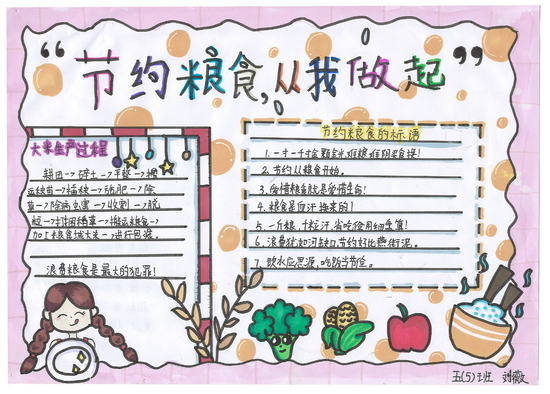 “节约粮食,从我做起”
大米生产过程
耕田→碎土→平整→搬
运秧苗→插秧→施肥→除
草→除病虫害→收割→脱
粒→打捆稻草→搬运粮食→
加工粮食成大米→进行包装。
浪费粮食是最大的犯罪!
节约粮食的标语
2. 节约从粮食开始。
3. 爱惜粮食就是爱惜生命!
4. 粮食是血汗换来的!
5. 一斤粮,千粒汗,省吃俭用细盘算!
6. 浪费犹如河缺口,节约好比燕衔泥。
7. 饮水应思源,吃饭当节俭。
五(5)班 刘薇